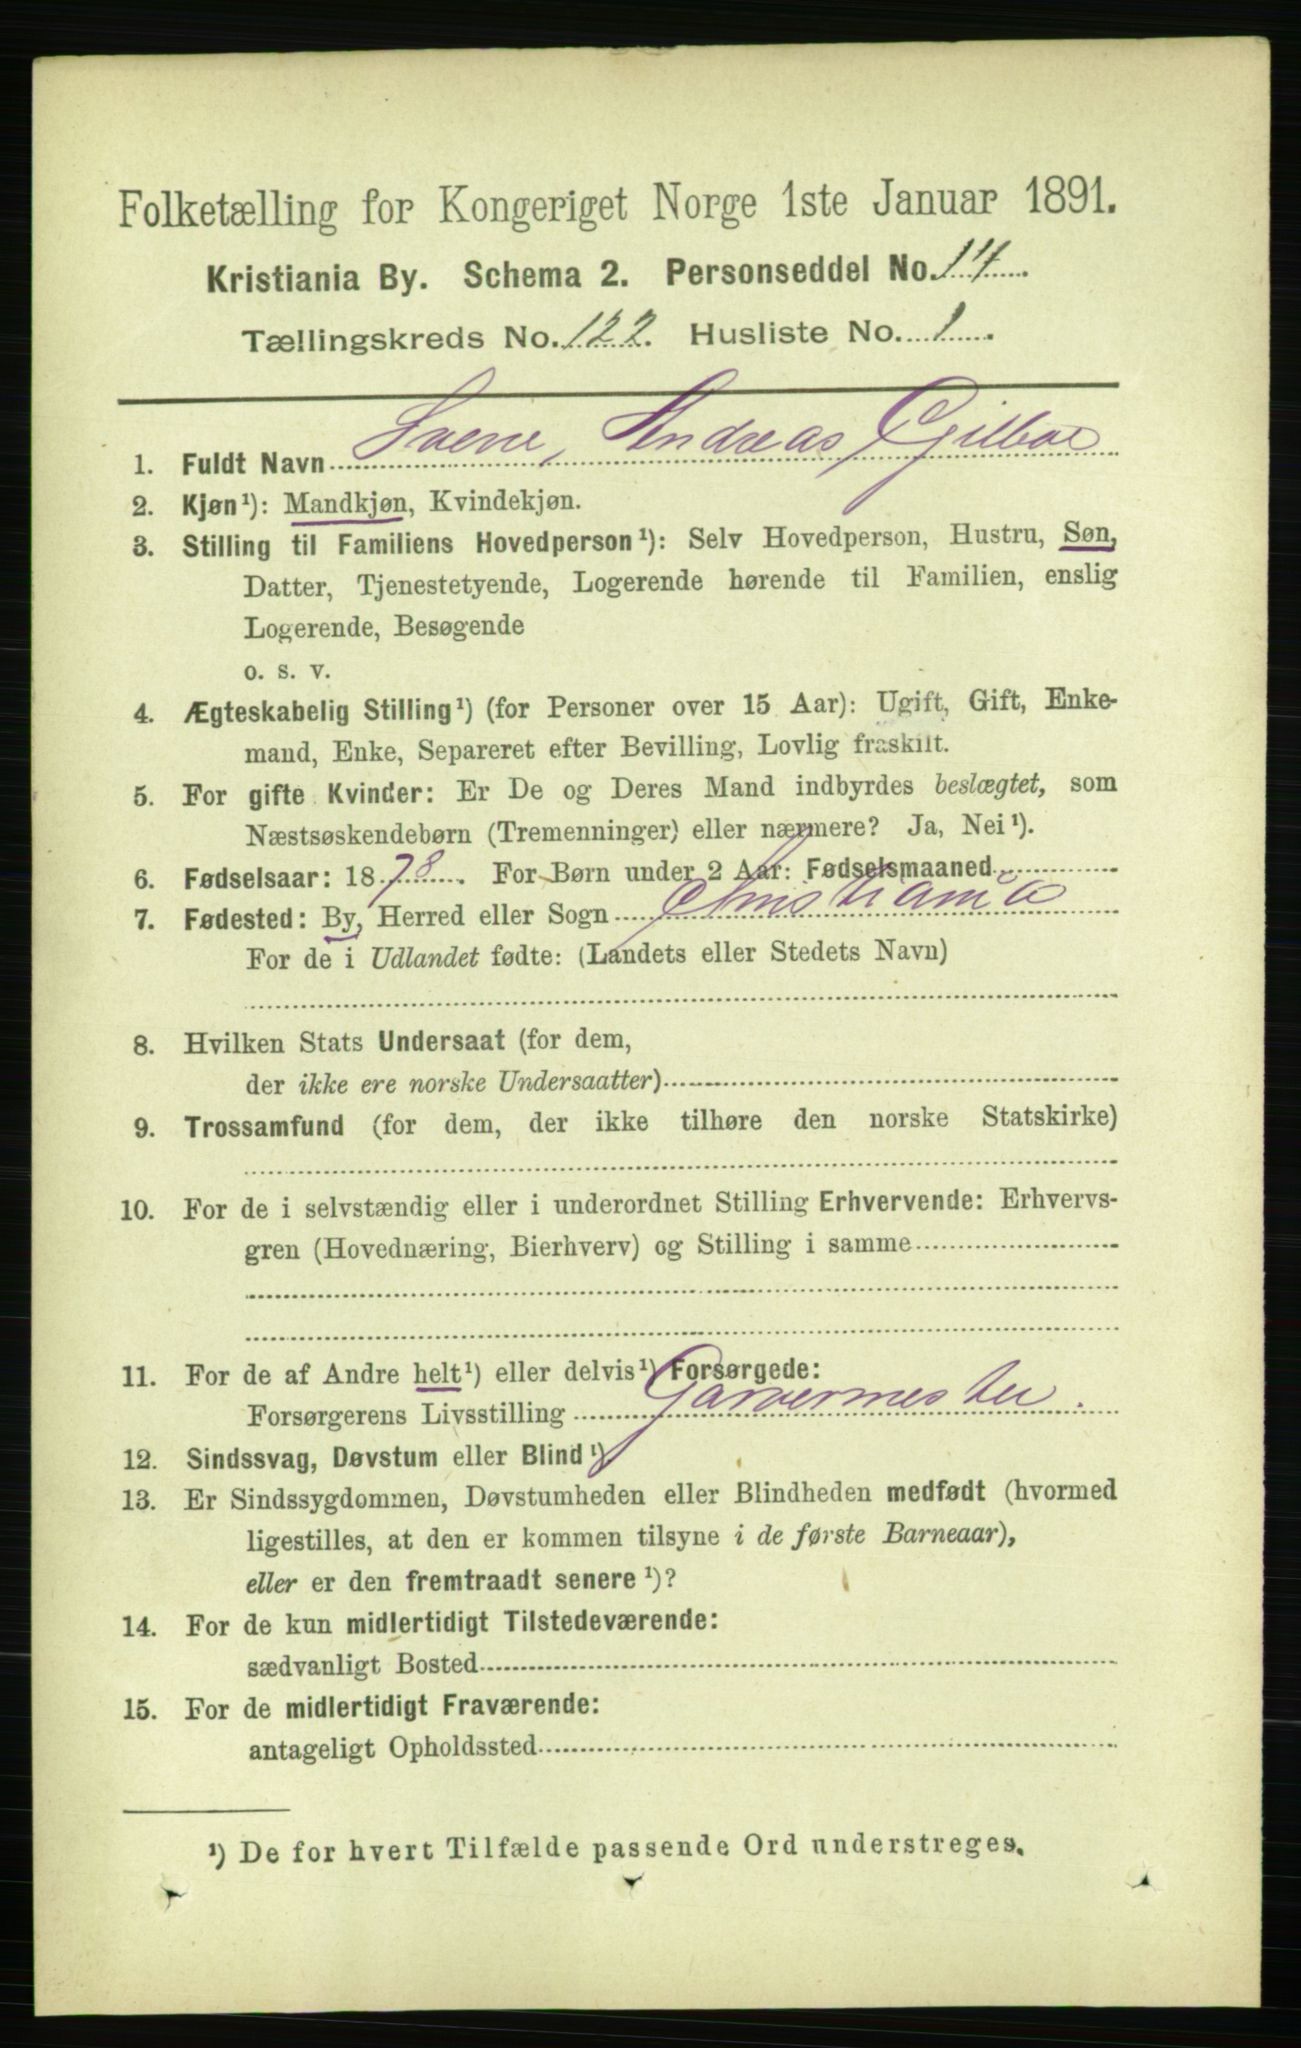 Folketælling for Kongeriget Norge 1ste Januar 1891.
Kristiania By. Schema 2. Personseddel No. 14
Tællingskreds No. 122. Husliste No. 1
1. Fuldt Navn Andreas
2. Kjøn¹): Mandkjøn, Kvindekjøn.
3. Stilling til Familiens Hovedperson¹): Selv Hovedperson, Hustru, Søn,
Datter, Tjenestetyende, Logerende hørende til Familien, enslig
Logerende, Besøgende
o. s. v.
4. Ægteskabelig Stilling¹) (for Personer over 15 Aar): Ugift, Gift, Enke-
mand, Enke, Separeret efter Bevilling, Lovlig fraskilt.
5. For gifte Kvinder: Er De og Deres Mand indbyrdes beslægtet, som
Næstsøskendebørn (Tremenninger) eller nærmere? Ja, Nei¹).
6. Fødselsaar: 1878. For Børn under 2 Aar: Fødselsmaaned
7. Fødested: By, Herred eller Sogn Christiania
For de i Udlandet fødte: (Landets eller Stedets Navn)
8. Hvilken Stats Undersaat (for dem,
der ikke ere norske Undersaatter)
9. Trossamfund (for dem, der ikke tilhøre den norske Statskirke)
10. For de i selvstændig eller i underordnet Stilling Erhvervende: Erhvervs-
gren (Hovednæring, Bierhverv) og Stilling i samme
11. For de af Andre helt¹) eller delvis¹) Forsørgede:
Forsørgerens Livsstilling Garvermester.
12. Sindssvag, Døvstum eller Blind¹)
13. Er Sindssygdommen, Døvstumheden eller Blindheden medfødt (hvormed
ligestilles, at den er kommen tilsyne i de første Barneaar),
eller er den fremtraadt senere¹)?
14. For de kun midlertidigt Tilstedeværende:
sædvanligt Bosted
15. For de midlertidigt Fraværende:
antageligt Opholdssted
¹) De for hvert Tilfælde passende Ord understreges.